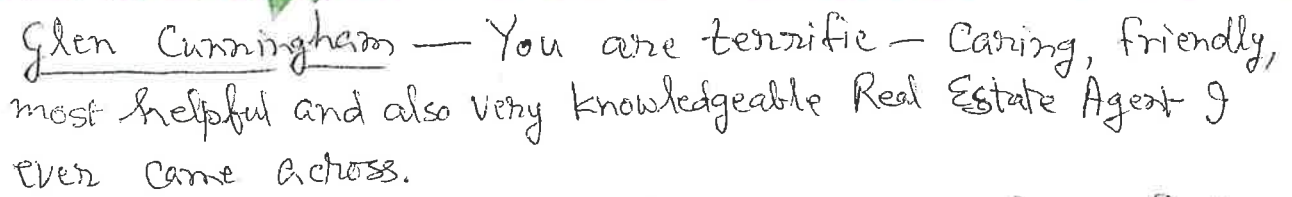 Glen Cunningham — You are terrific — Caring, friendly,
most helpful and also very knowledgeable Real Estate Agent I
ever came across.